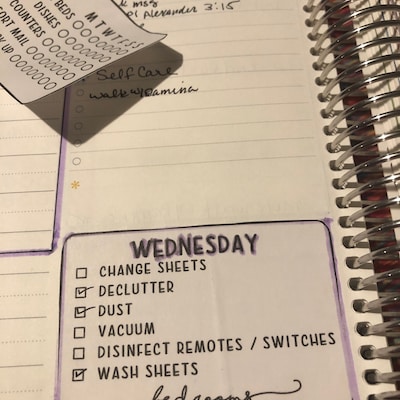 M T W T F S S
BEDS
DISHES
COUNTERS
SORT MAIL
UP
Alexander 3:15
Self Care
WEDNESDAY
CHANGE SHEETS
DECLUTTER
DUST
VACUUM
DISINFECT REMOTES / SWITCHES
WASH SHEETS
bedrooms